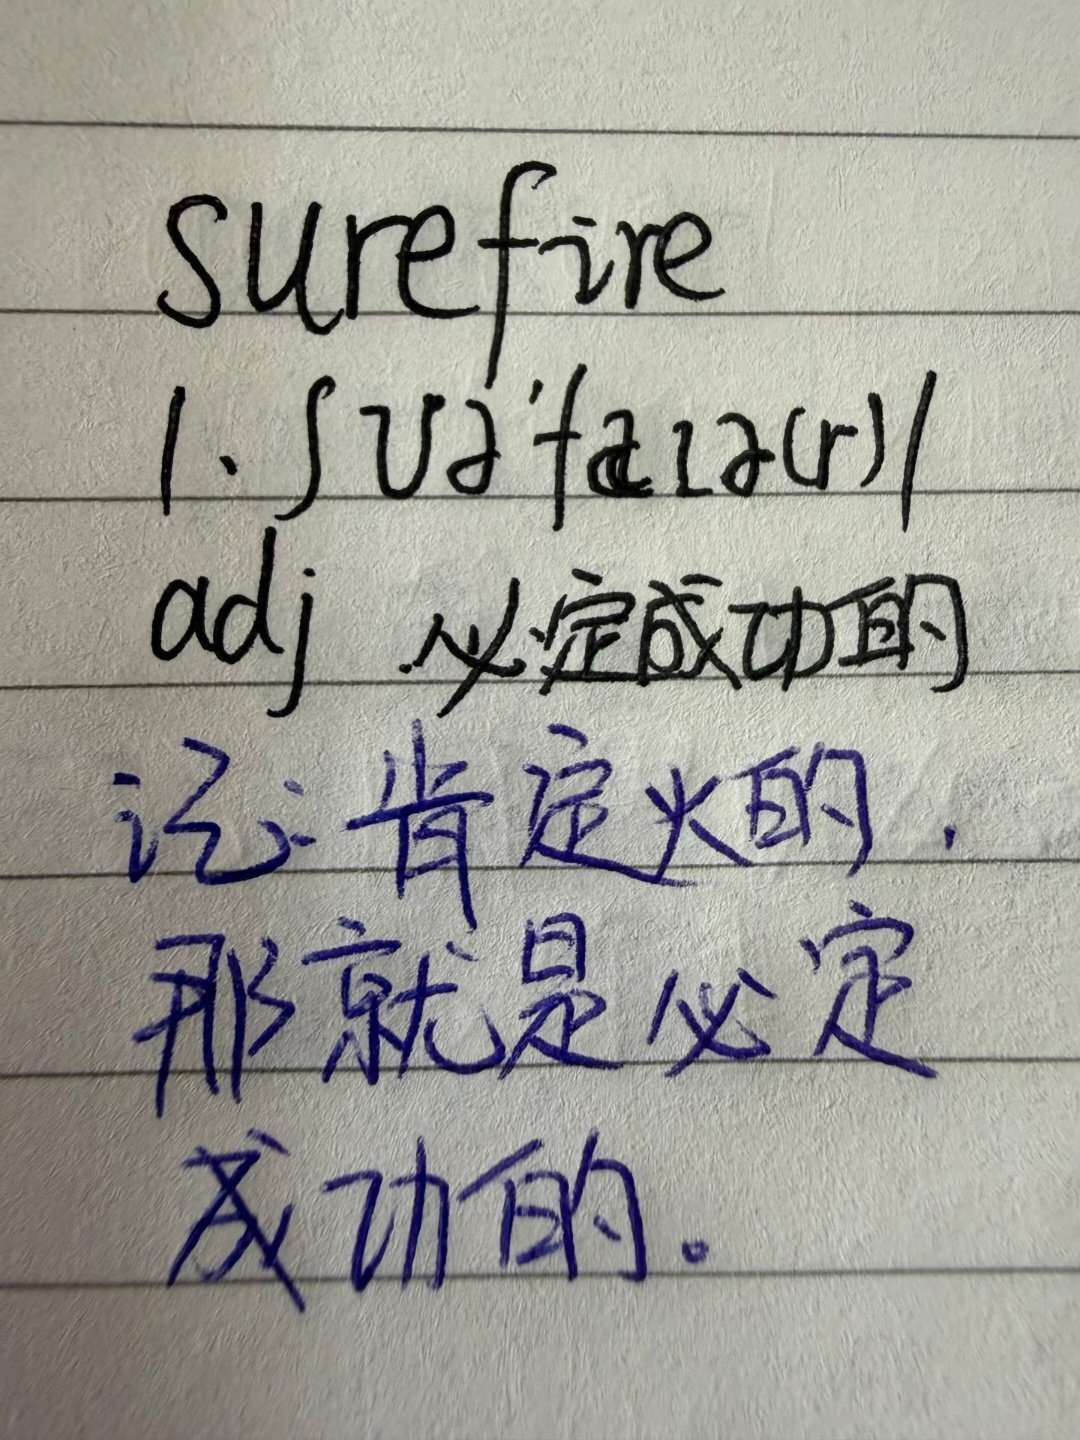 surefire
/ˌʃʊə'faɪə(r)/
adj 必定成功的
记: 肯定火的,
那就是必定
成功的。